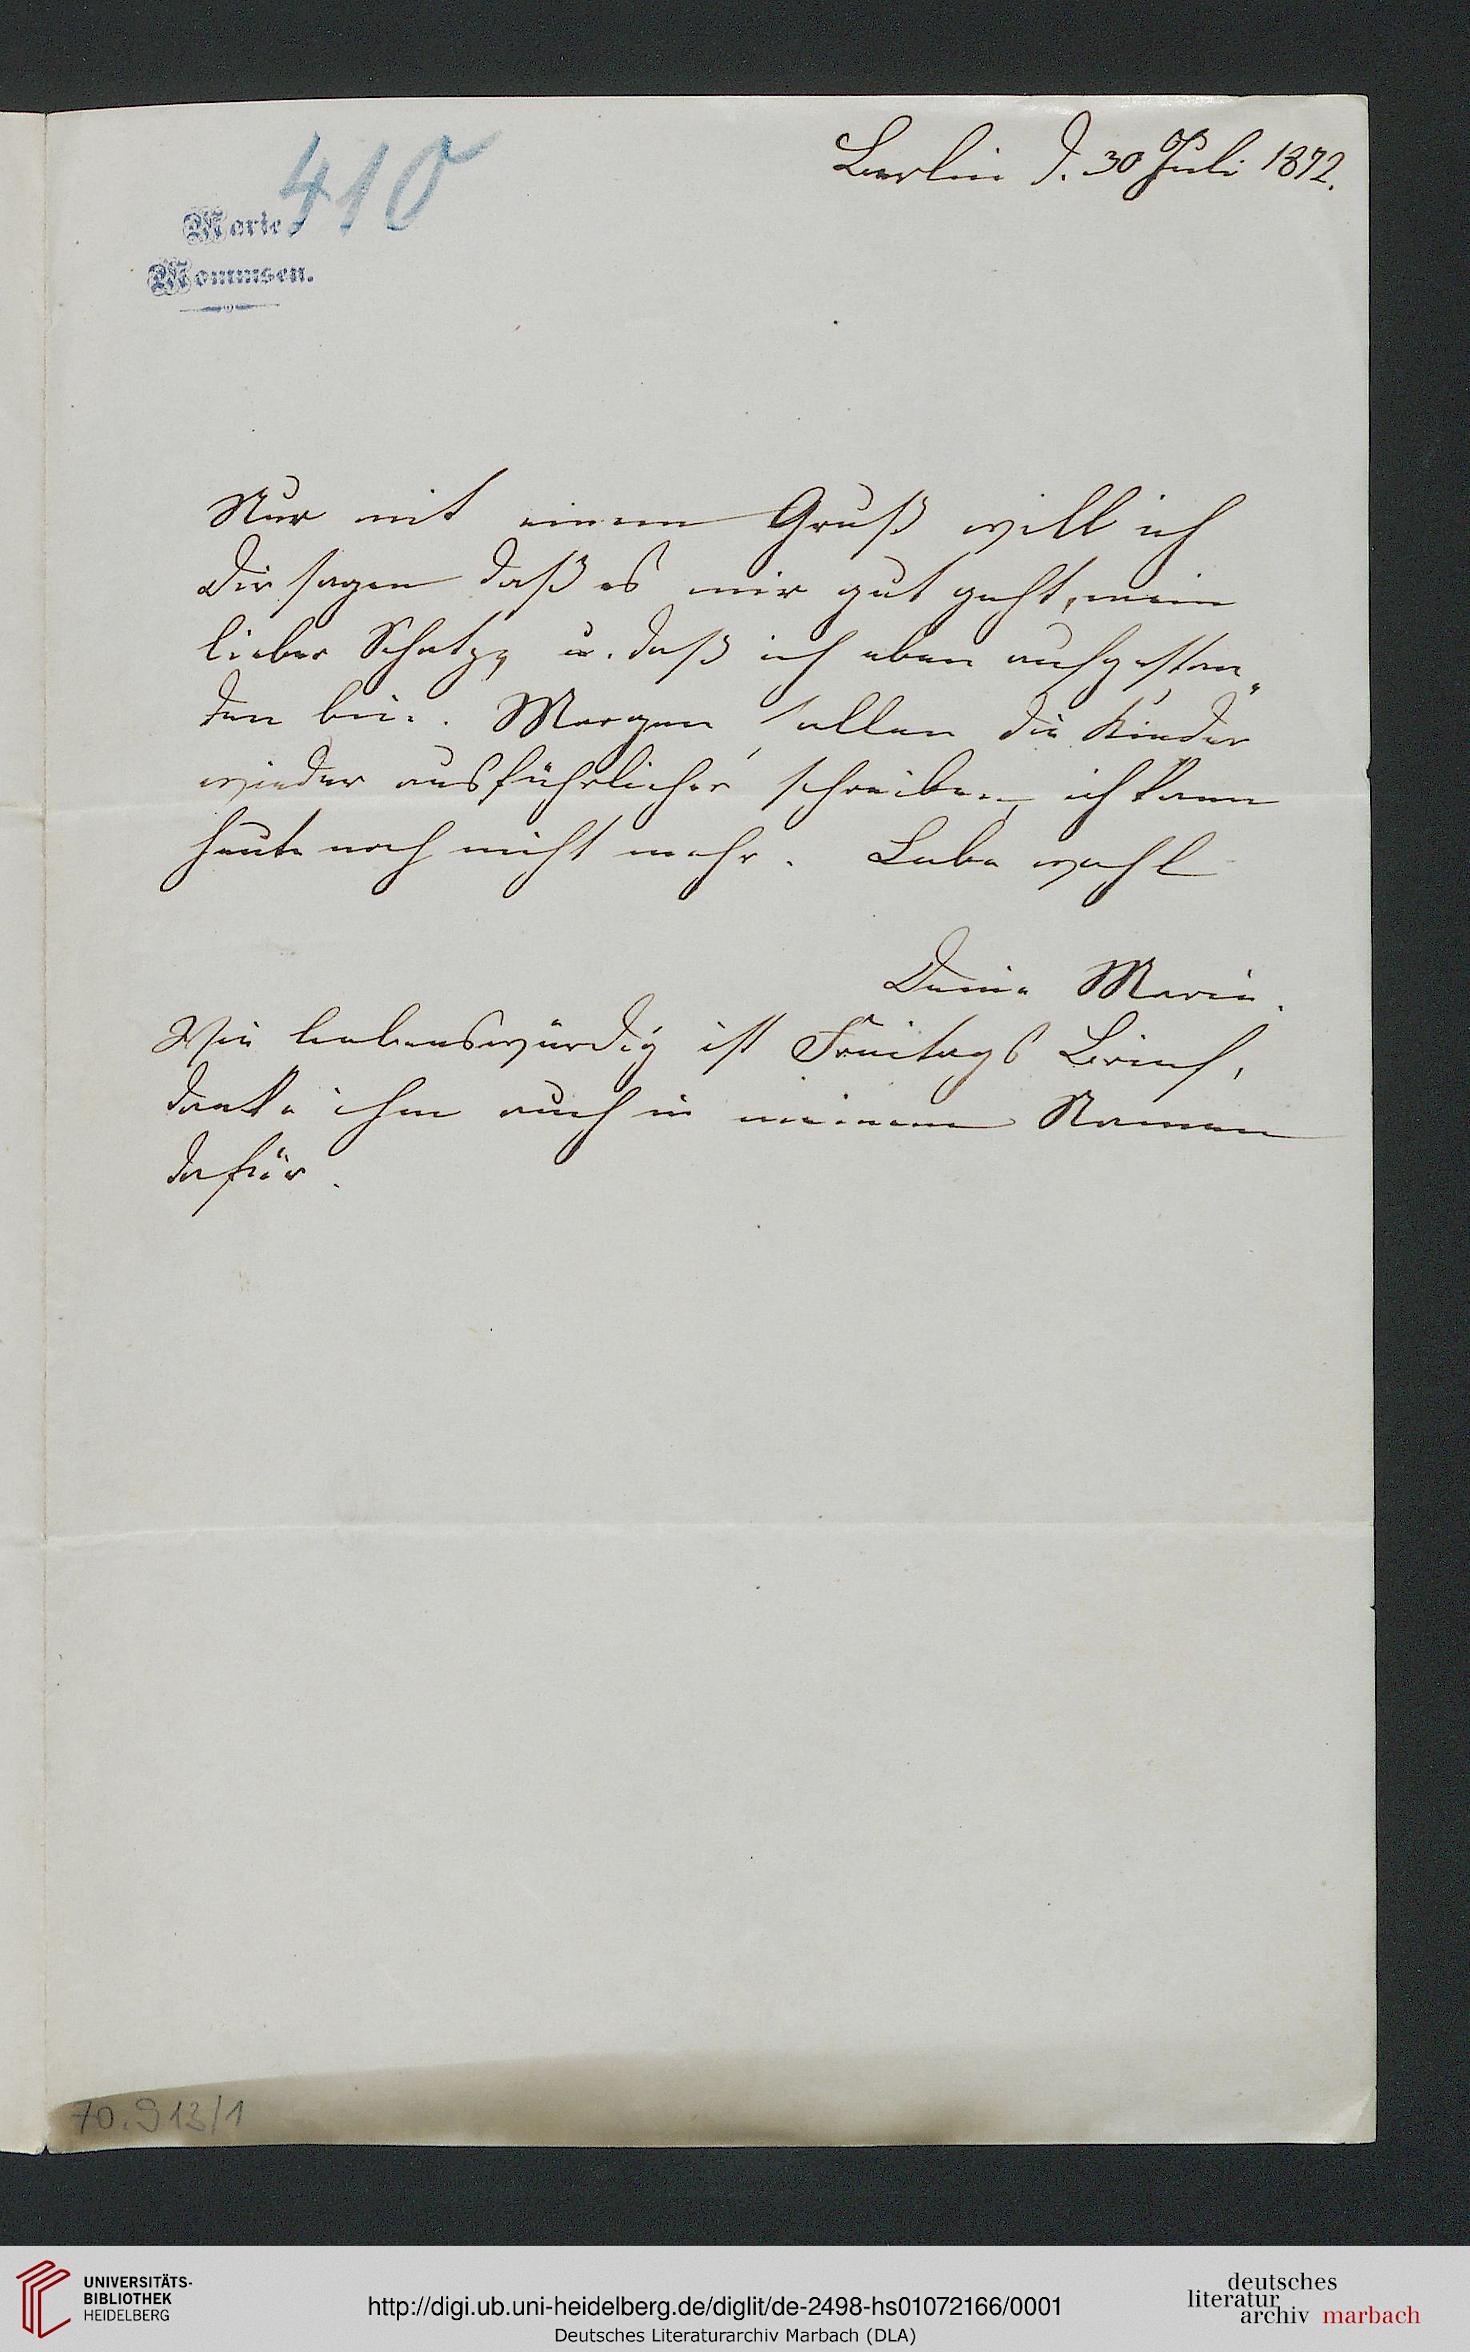 410
Berlin d. 30 Juli 1872.
Marie
Mommsen.
Nur mit einem Gruß will ich
Dir sagen daß es mir gut geht, mein
lieber Schatz, u. daß ich eben aufgestan„
den bin. Morgen sollen die Kinder
wieder ausführlicher schreiben, ich kann
heute noch nicht mehr. Lebe wohl
Deine Marie.
Wie liebenswürdig ist Freitags Brief,
danke ihm auch in meinem Namen
dafür.
70.913/1
UNIVERSITÄTS-
BIBLIOTHEK
HEIDELBERG
http://digi.ub.uni-heidelberg.de/diglit/de-2498-hs01072166/0001
Deutsches Literaturarchiv Marbach (DLA)
deutsches
literatur
archiv marbach